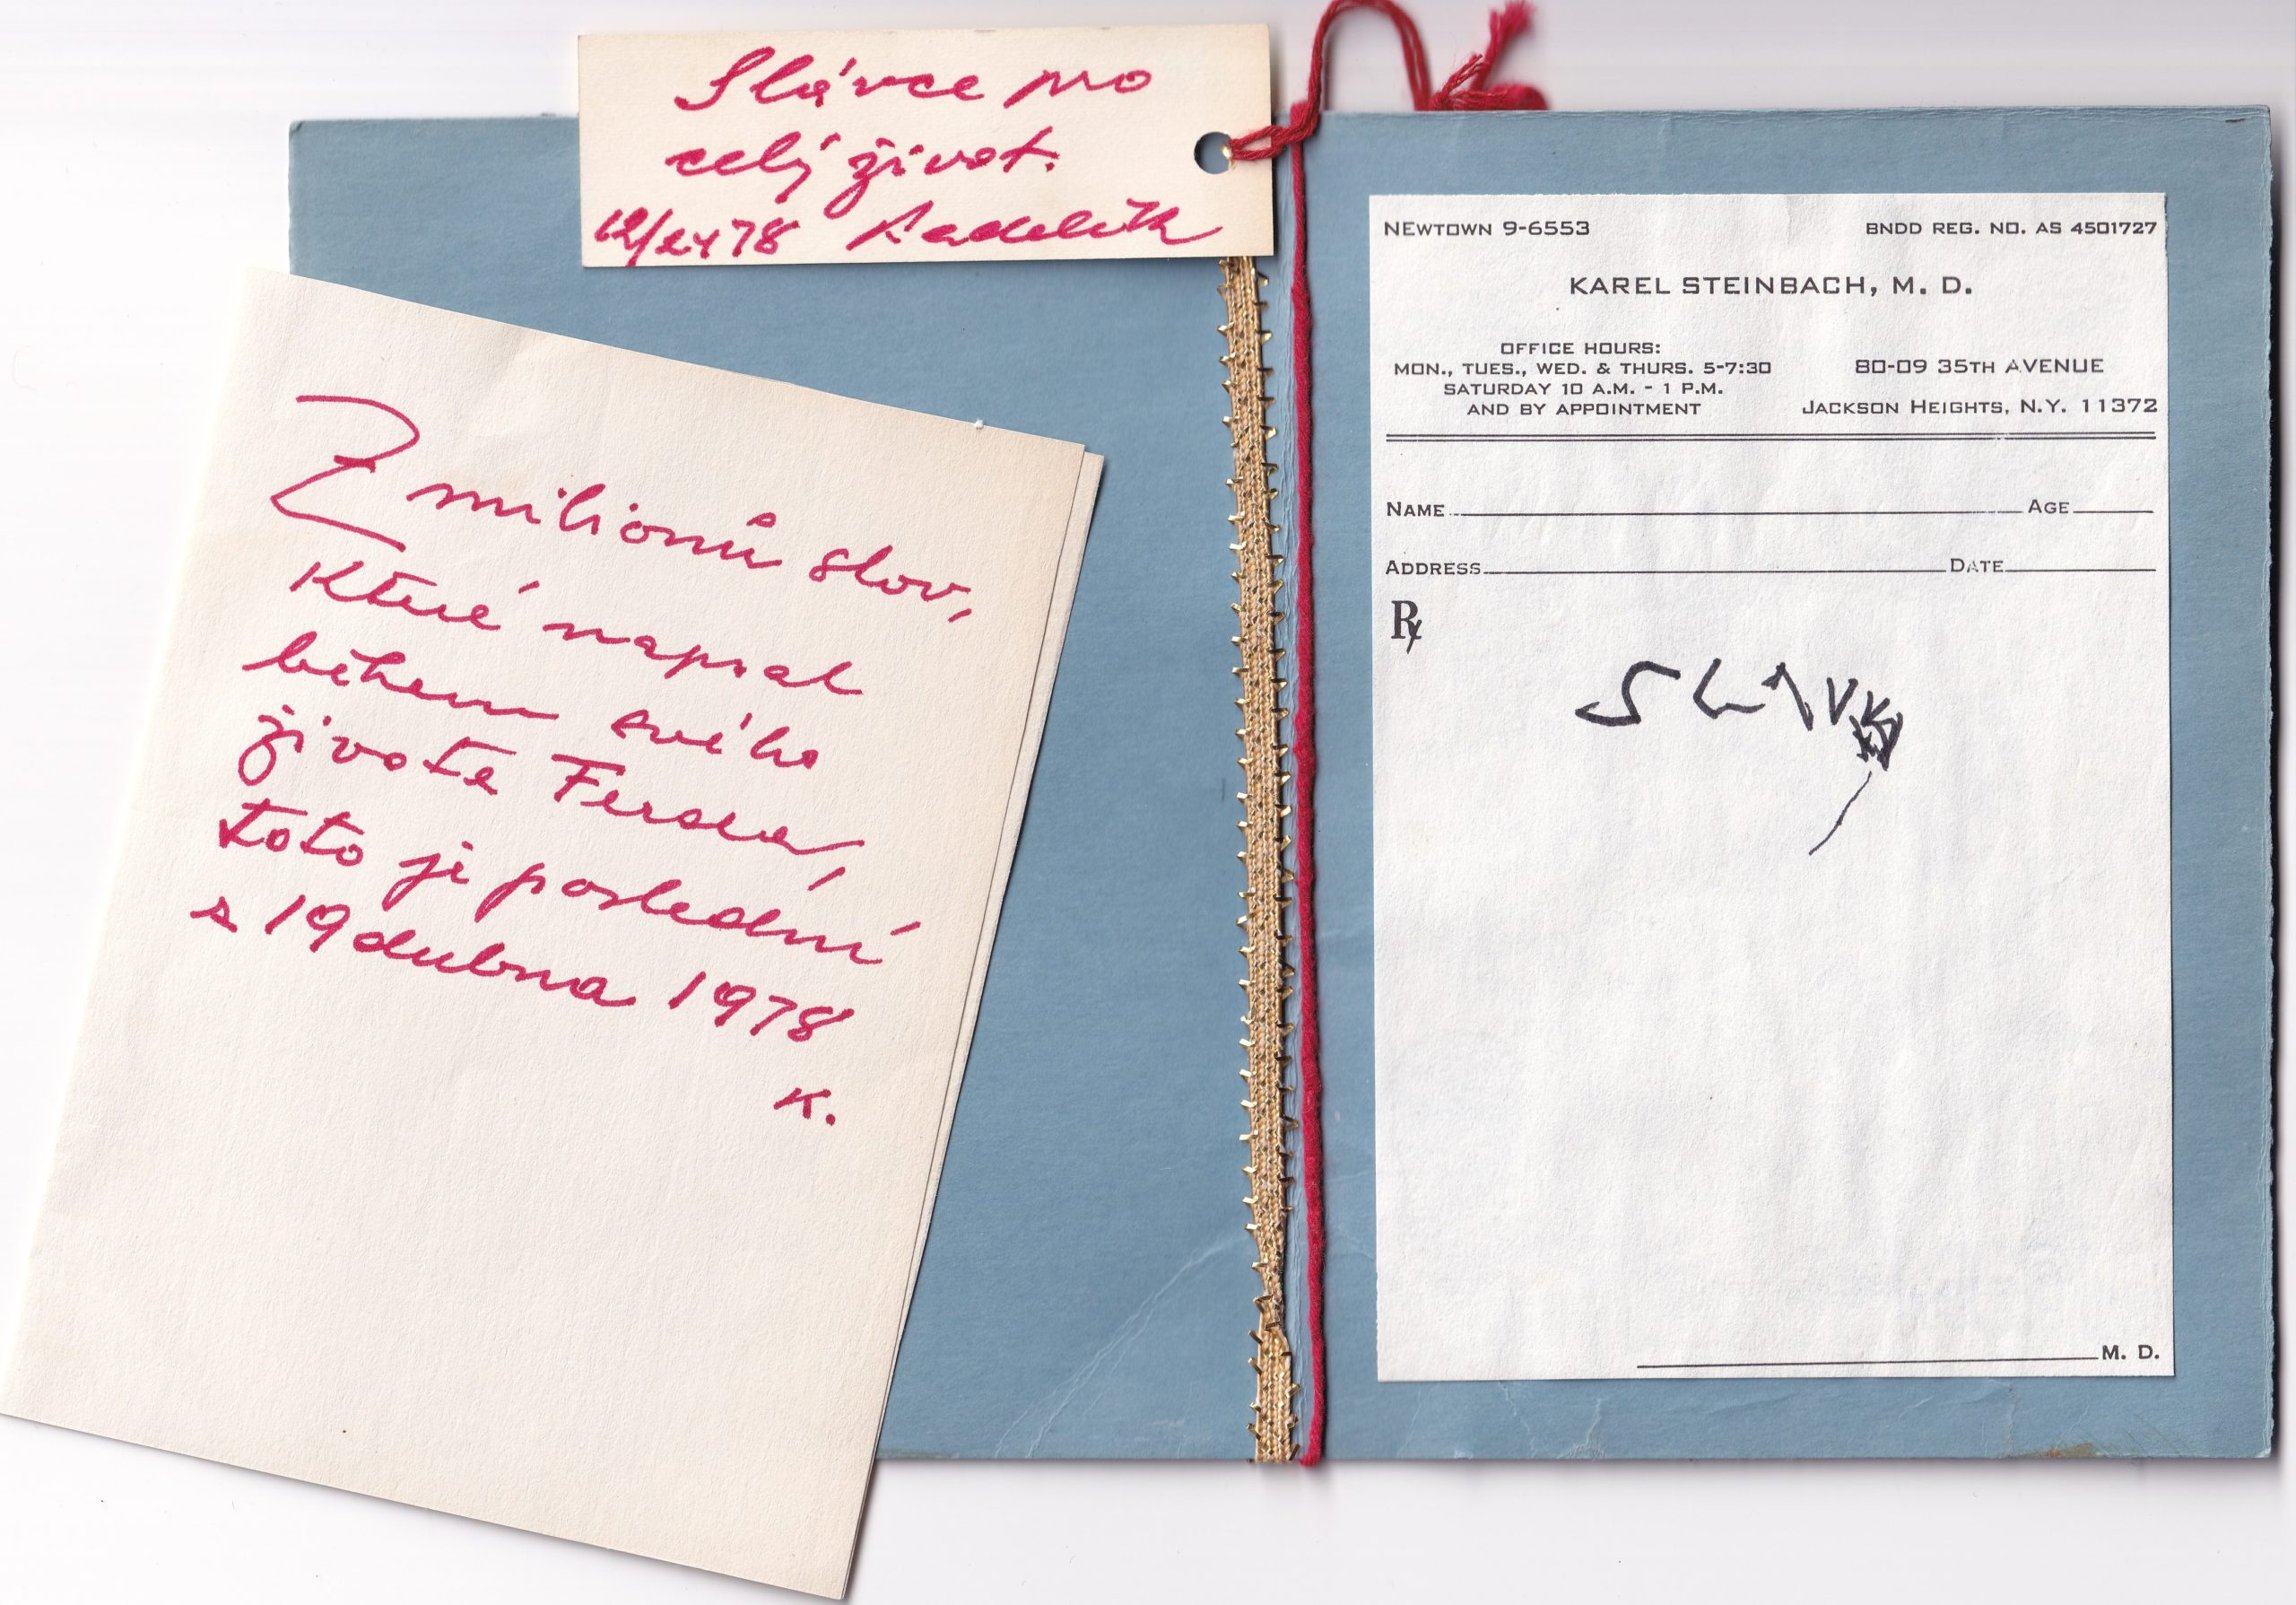 Slávce pro
celý život.
12/24 78
Z milionů slov,
které napsal
během svého
života Ferda,
toto je poslední
z 19 dubna 1978
K.
NEWTOWN 9-6553
BNDD REG. NO. AS 4501727
KAREL STEINBACH, M. D.
OFFICE HOURS:
MON., TUES., WED. & THURS. 5-7:30
SATURDAY 10 A.M. - 1 P.M.
AND BY APPOINTMENT
80-09 35TH AVENUE
JACKSON HEIGHTS, N.Y. 11372
NAME
AGE
ADDRESS
DATE
℞
M. D.